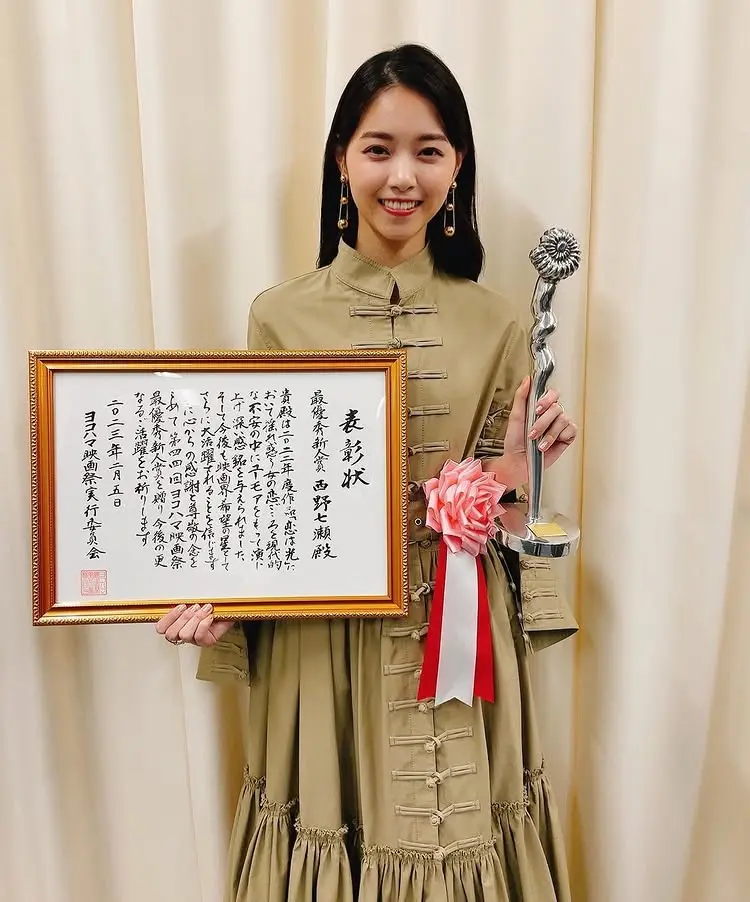 表彰状
最優秀新人賞 西野七瀬殿
貴殿は二〇二二年度作品「恋は光」に
おいて揺れ惑う女の恋ごころを現代的
な不安の中にユーモアをもって演じ
上げ深い感銘を与えられました
そして今後も映画界希望の星として
さらに大活躍されることを信じます
ここに心からの感謝と尊敬の念を
こめて第四四回ヨコハマ映画祭
最優秀新人賞を贈り今後の更
なるご活躍をお祈りします
二〇二三年二月五日
ヨコハマ映画祭実行委員会